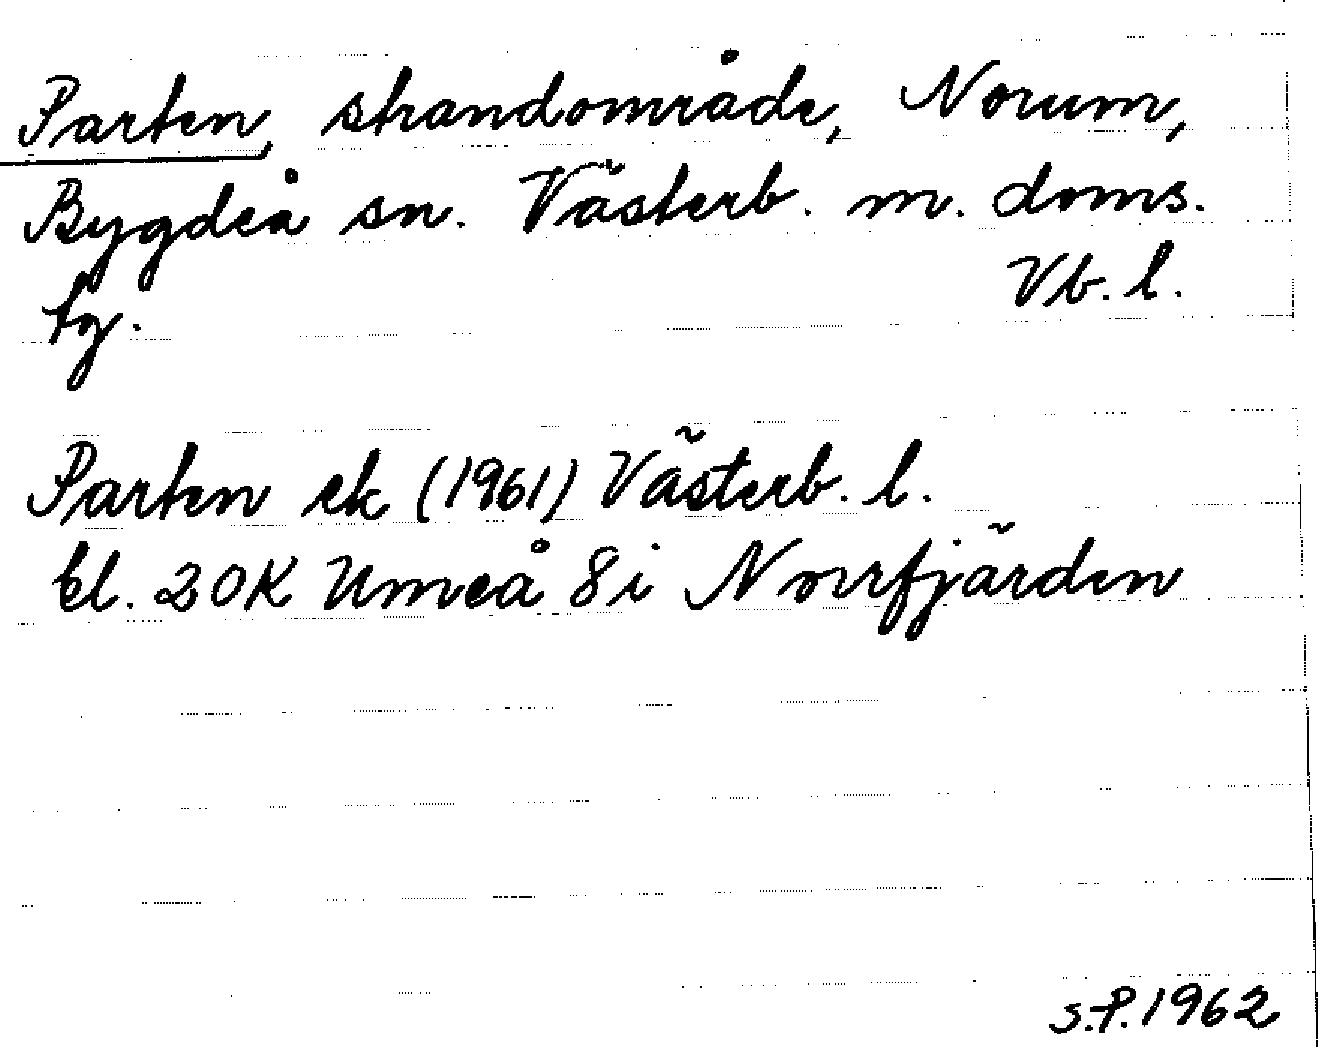 Parten, strandområde, Norum,
Bygdeå sn. Västerb. m. doms.
tg. Vb. l.
Parten ek (1961) Västerb. l.
bl. 20K Umeå 8i Norrfjärden
S.P. 1962